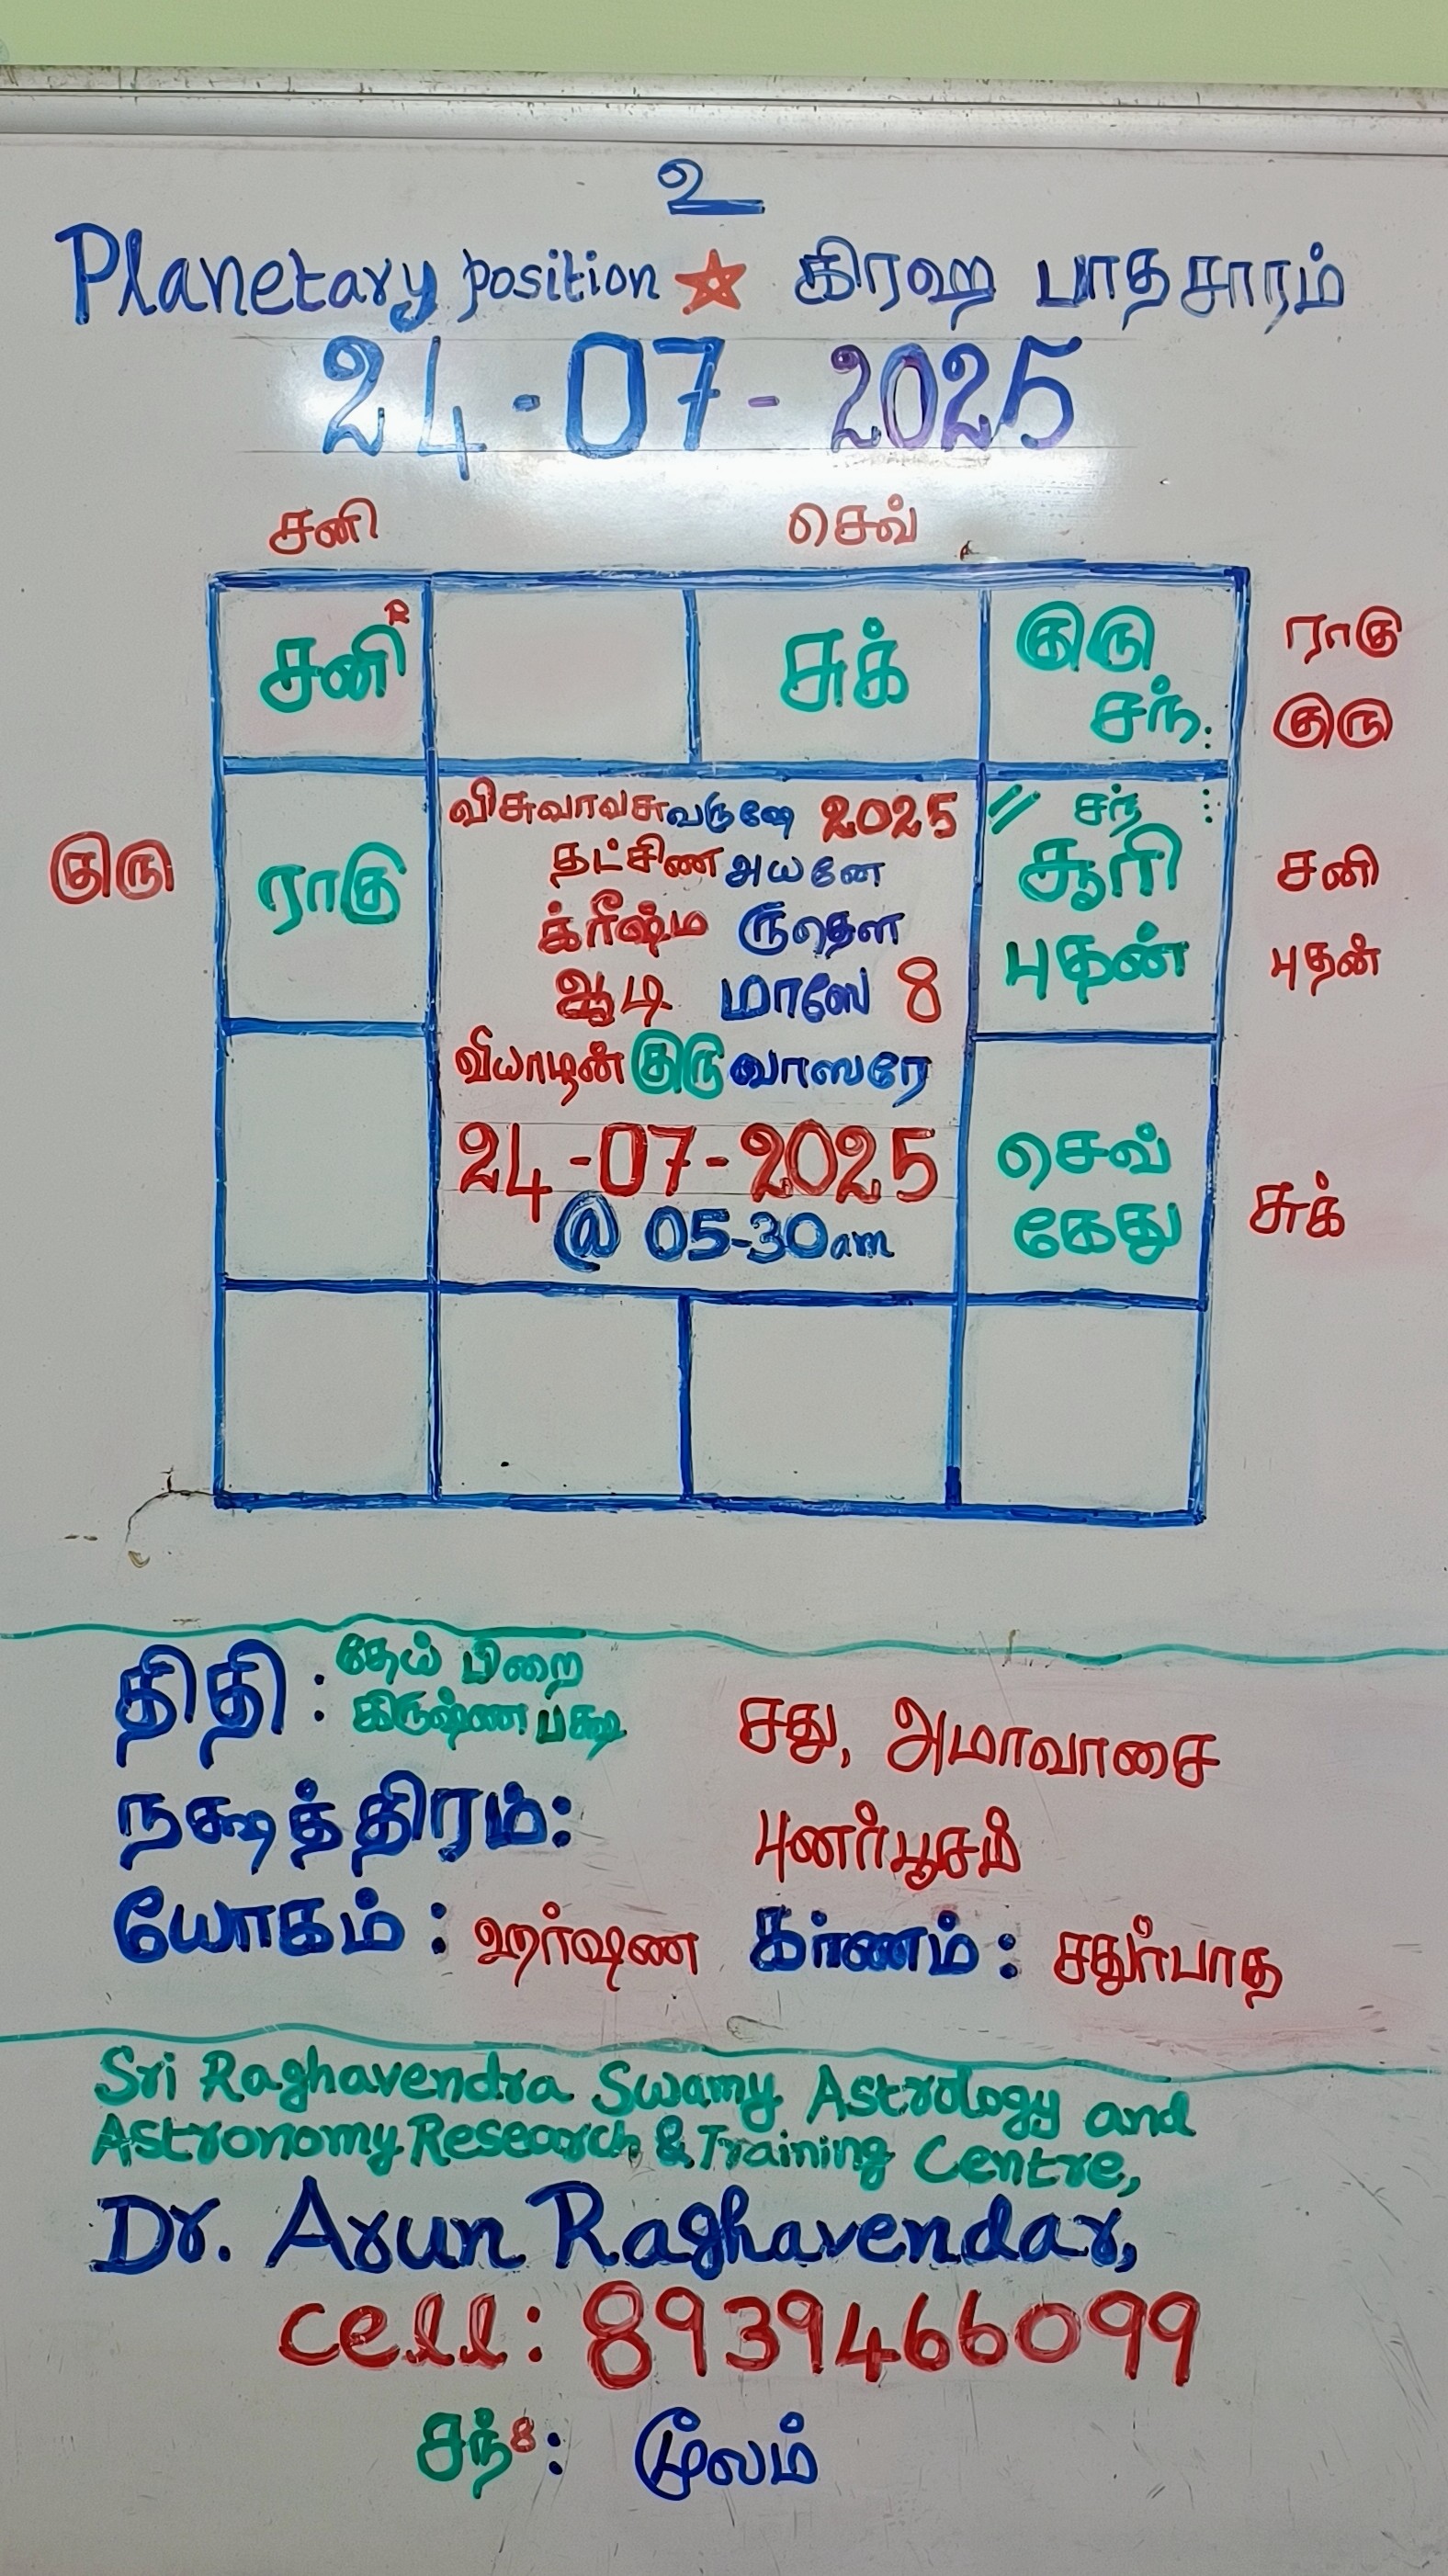 உ
Planetary position ☆ கிரஹ பாதசாரம்
24-07-2025
சனி செவ்
சனி R
சுக்
குரு
சந்
ராகு
குரு
குரு
ராகு
விசுவாவசுவருஷே 2025
தட்சிண அயனே
க்ரீஷ்ம ருதௌ
ஆடி மாஸே 8
வியாழன் குரு வாஸரே
24-07-2025
@ 05-30am
// சந்
சூரி
புதன்
சனி
புதன்
செவ்
கேது
சுக்
திதி : தேய் பிறை
கிருஷ்ண பக்ஷ
சது, அமாவாசை
நக்ஷத்திரம்: புனர்பூசம்
யோகம் : ஹர்ஷண கர்ணம் : சதுர்பாத
Sri Raghavendra Swamy Astrology and
Astronomy Research & Training Centre,
Dr. Arun Raghavendar,
cell: 8939466099
சந்8: மூலம்